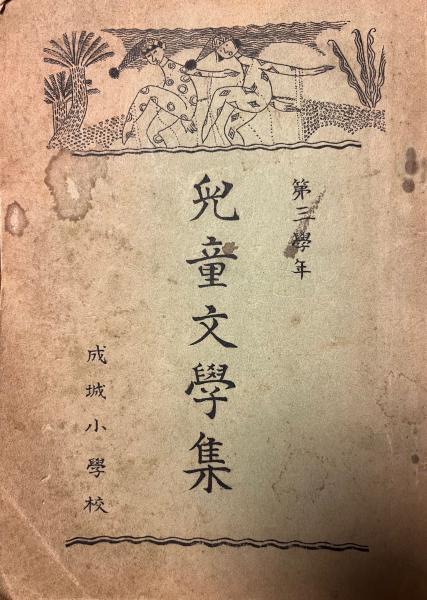 第三學年
兒童文學集
成城小學校